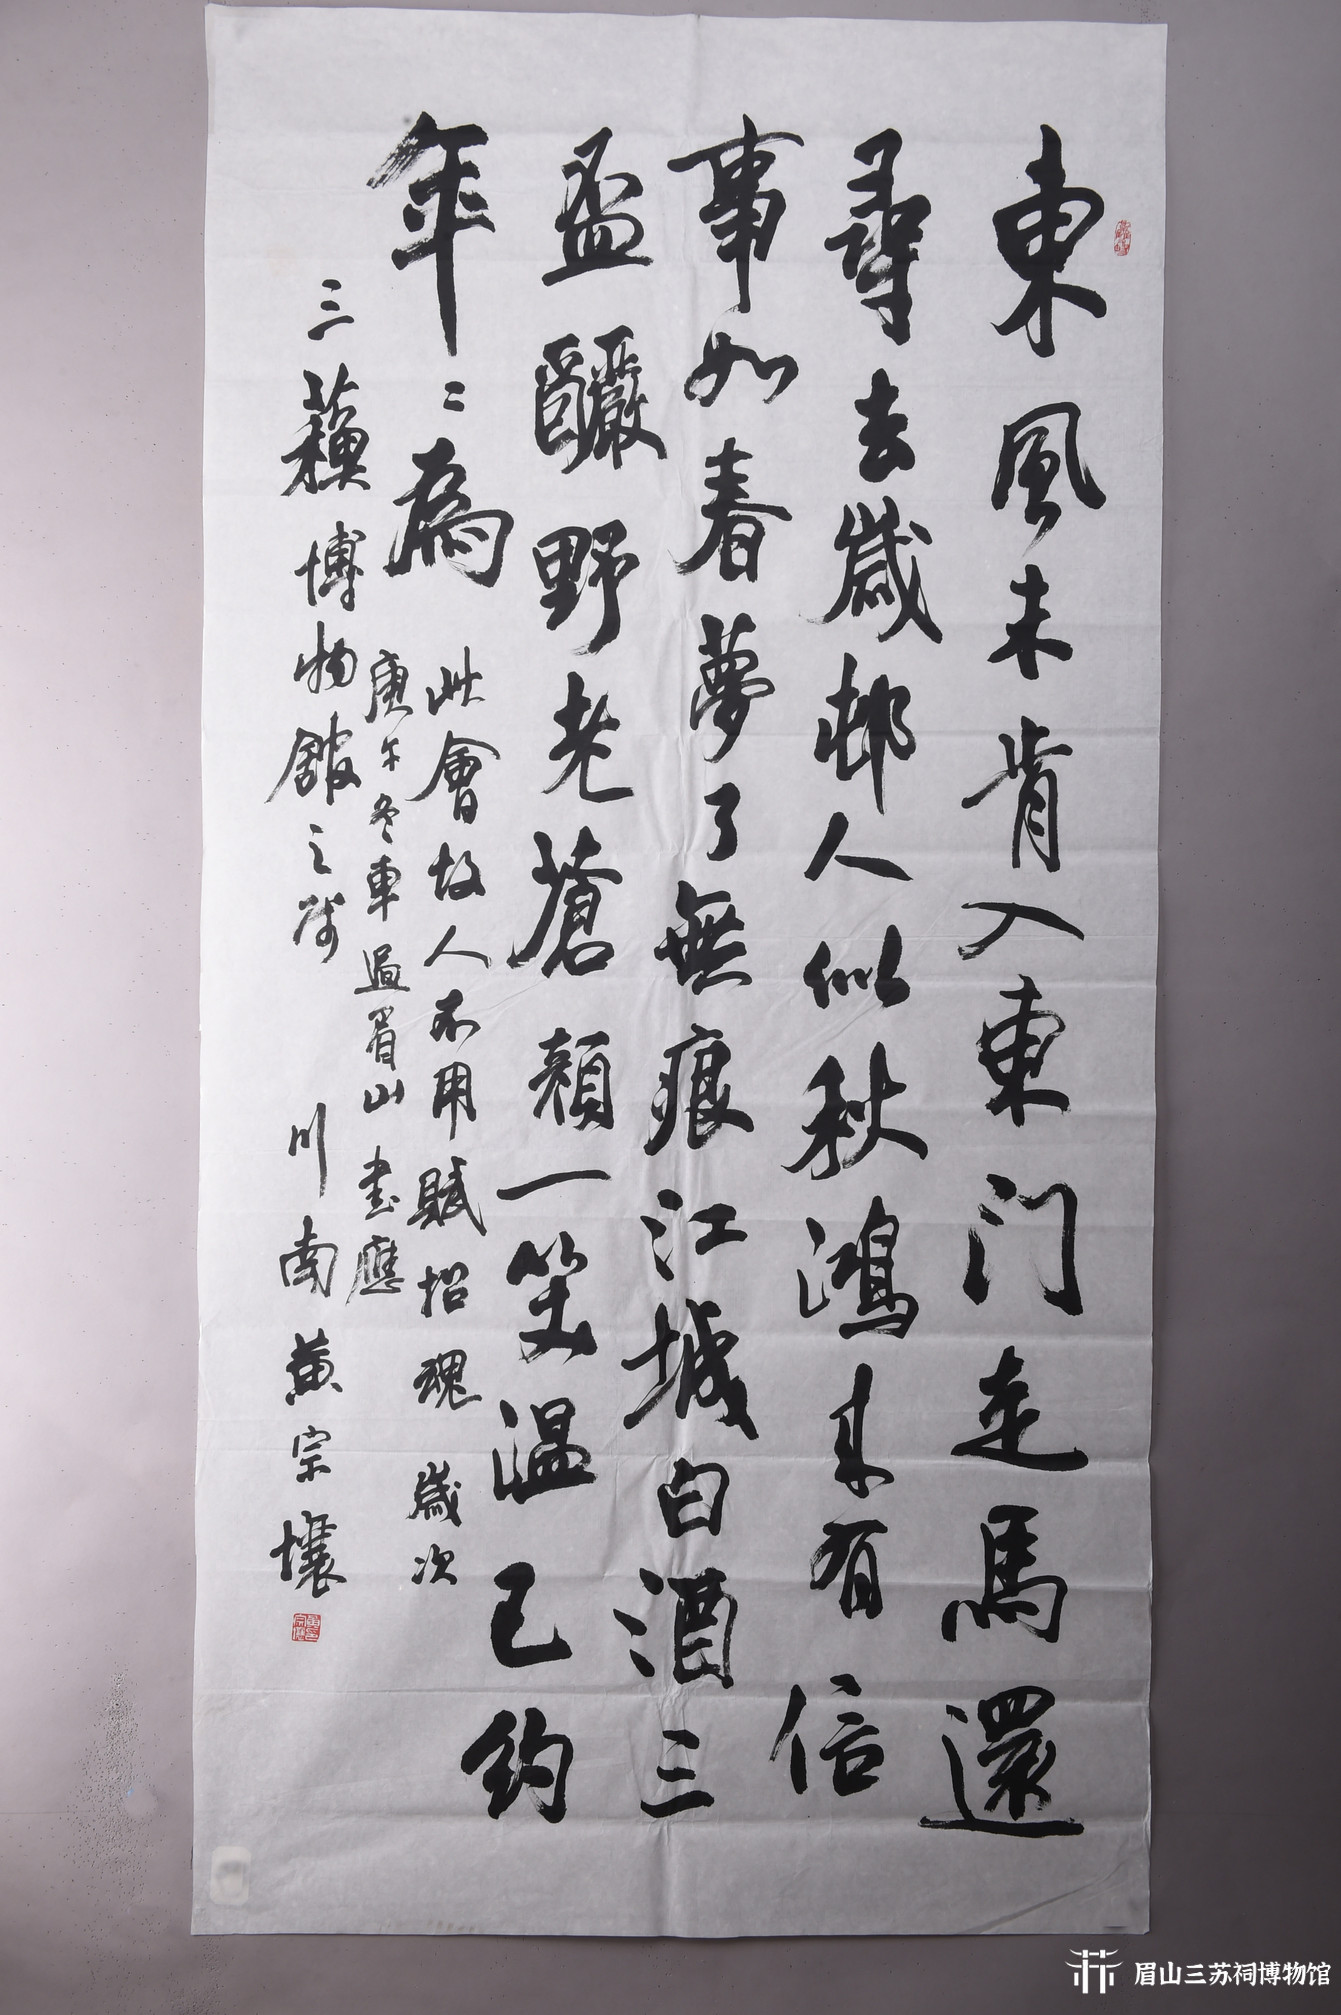 東風未肯入東門走馬還
尋去歲邨人似秋鴻来有信
事如春夢了無痕江城白酒三
盃釅野老蒼顏一笑温已約
年〻為此會故人不用賦招魂 歲次
庚午冬車過眉山書應
三蘇博物館之 川南黄宗壤
眉山三苏祠博物馆